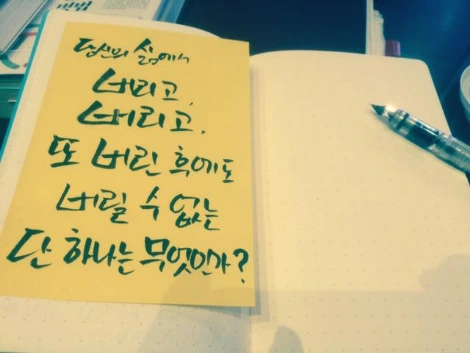 당신의 삶에서
버리고,
버리고,
또 버린 후에도
버릴 수 없는
단 하나는 무엇인가?